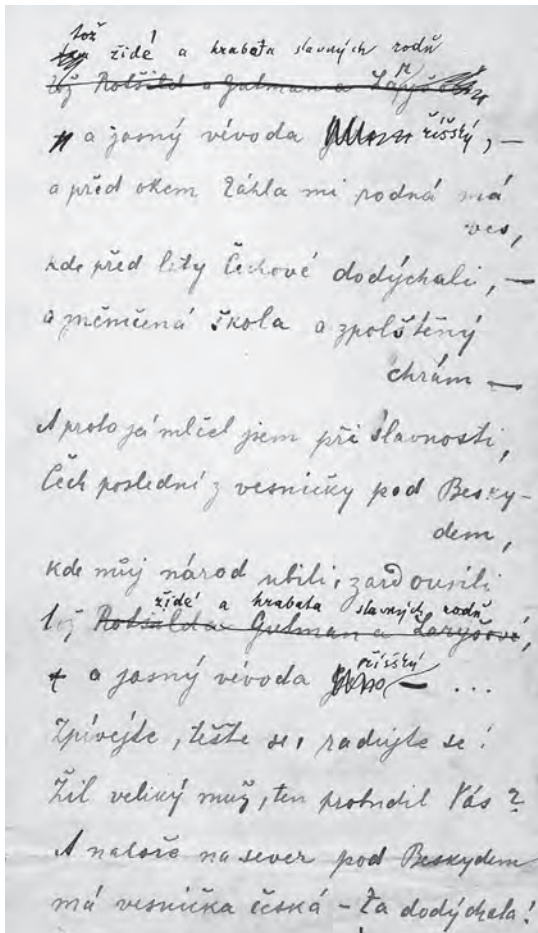 tož židé a hrabata slavných rodů
tož Rotšild a Gutman a Laryš
a jasný vévoda říšský, —
a před okem táhla mi rodná má
ves,
kde před lety Čechové dodýchali, —
a němčená škola a zpolštěný
chrám —
A proto já mlčel jsem při slavnosti,
Čech poslední z vesničky pod Besky-
dem,
kde můj národ ubili, zardousili
židé a hrabata slavných rodů
tož Rotšild a Gutman a Laryšové,
říšský
a jasný vévoda — ...
Zpívejte, těšte se, radujte se!
Žil veliký muž, ten probudil Vás?
A nahoře na sever pod Beskydem
má vesnička česká – ta dodýchala!